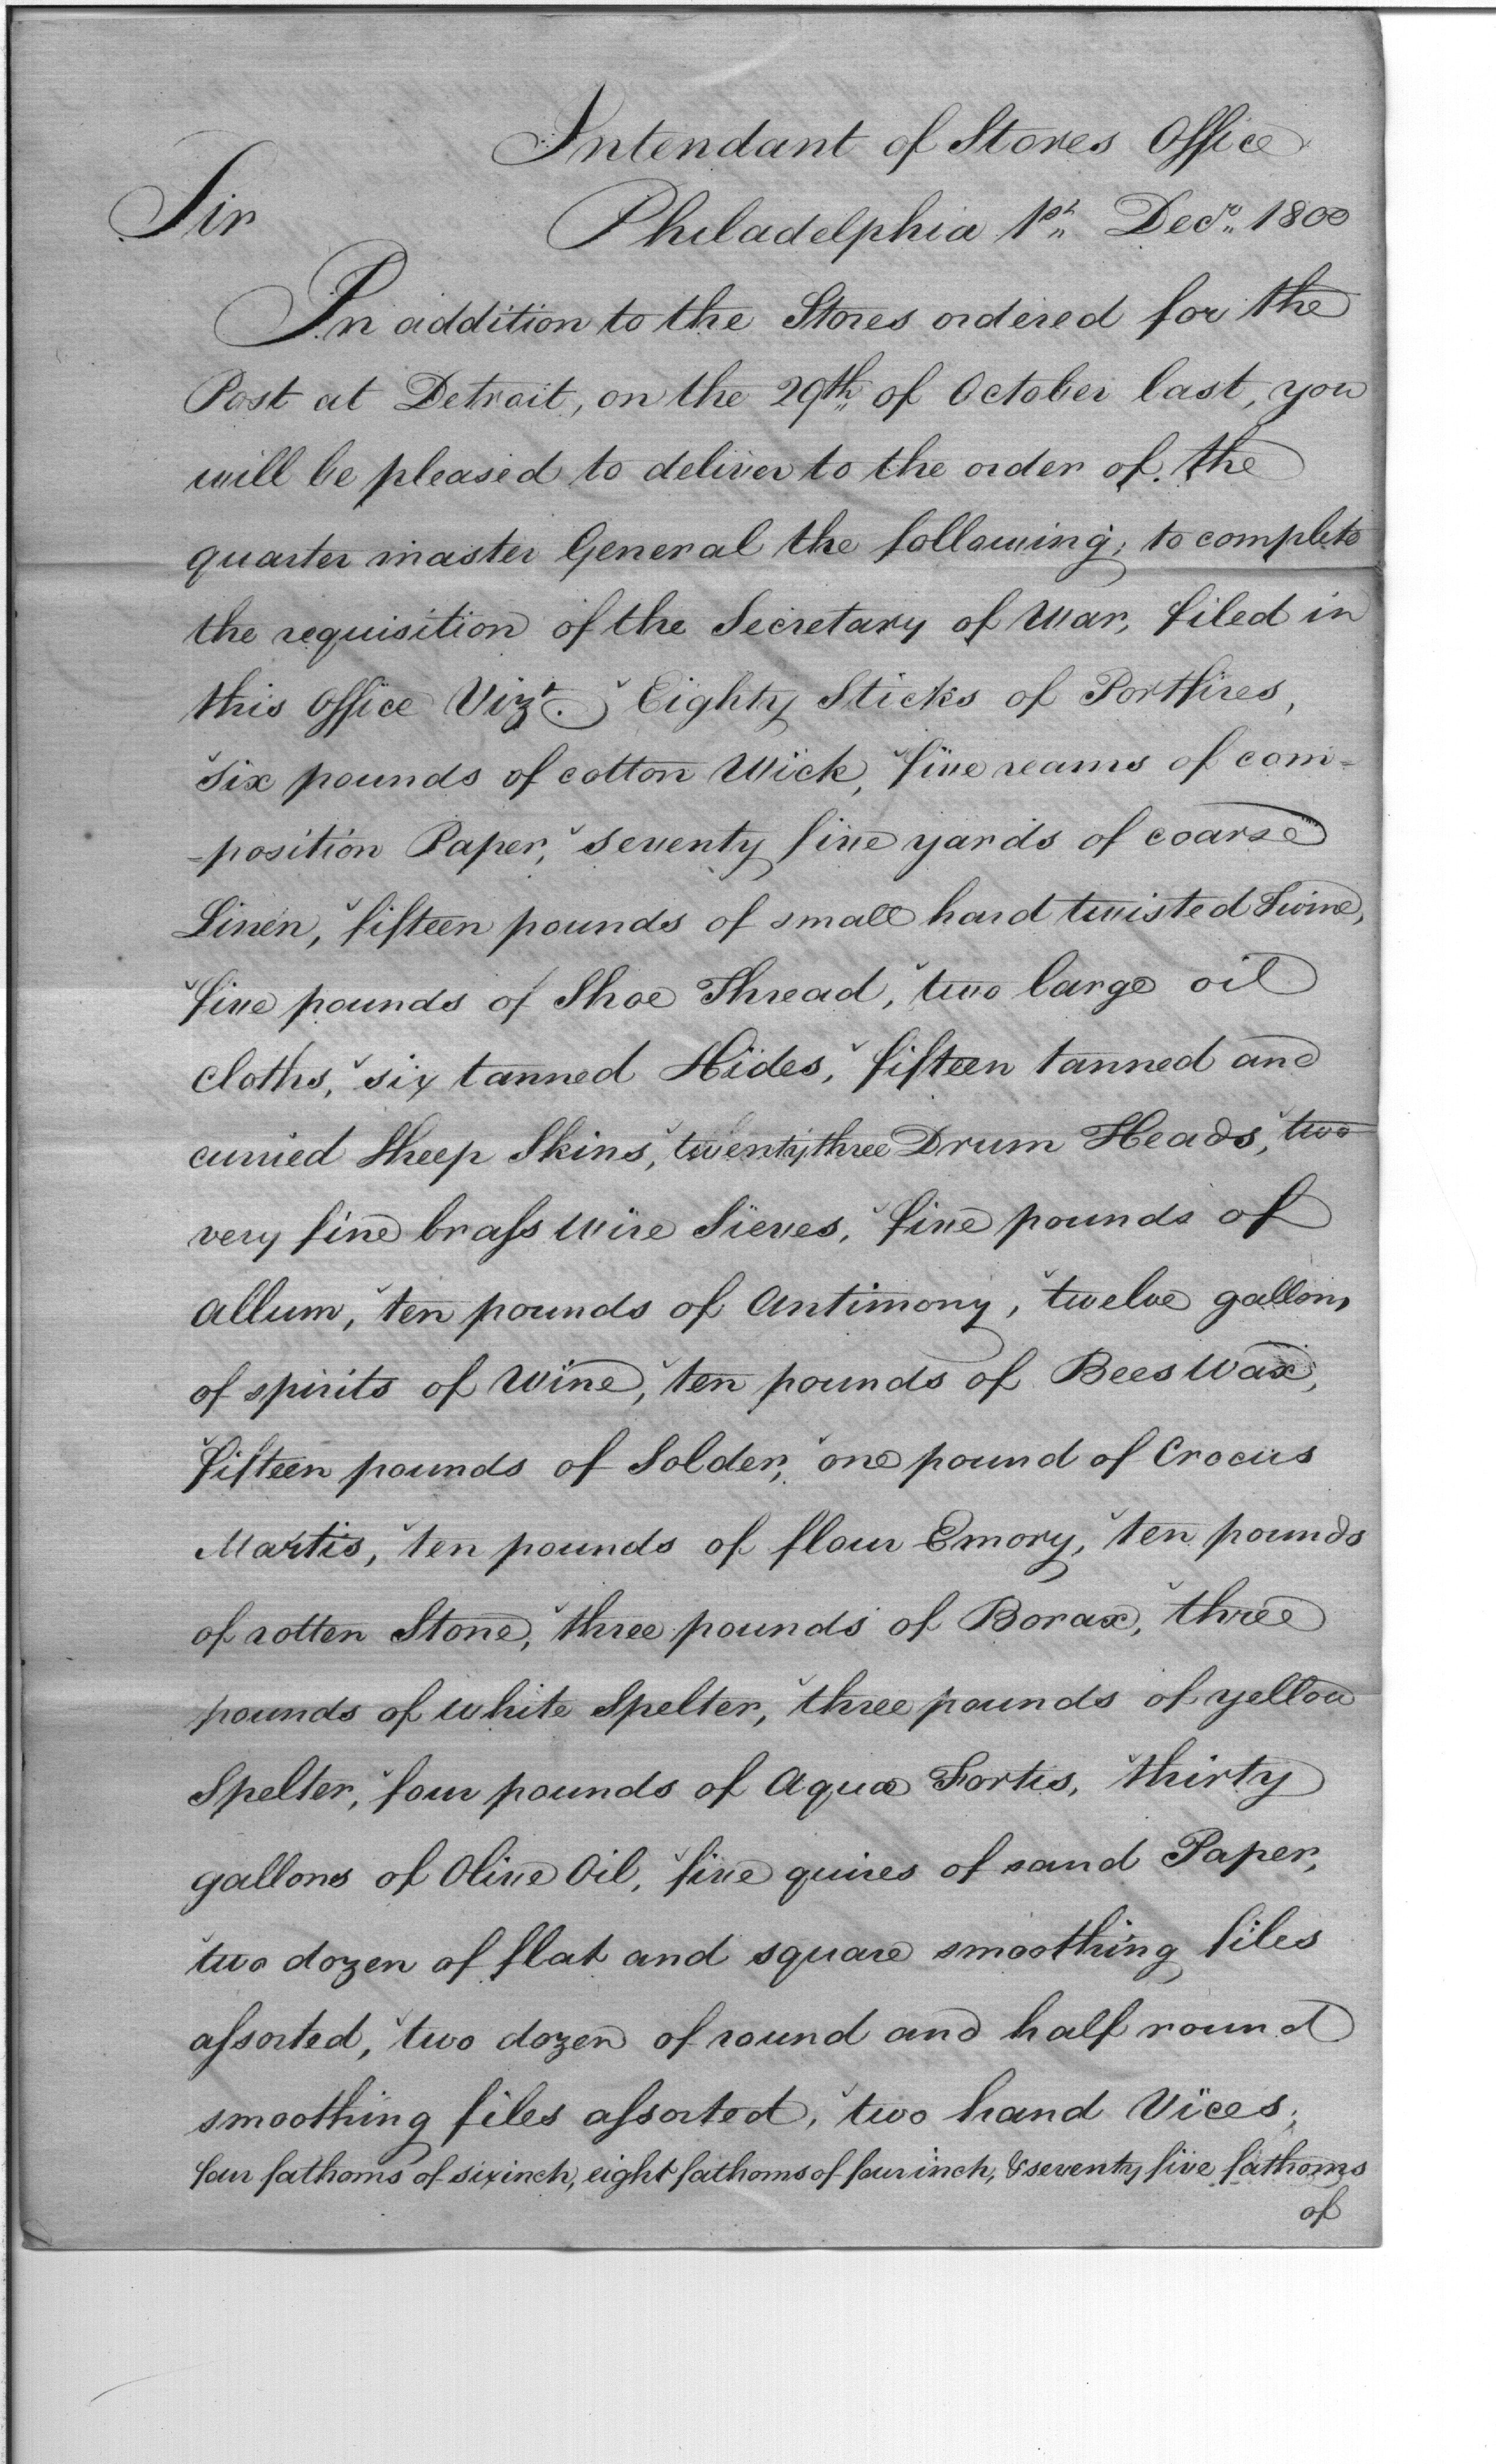 Intendant of Stores Office
Sir Philadelphia 1st Decr. 1800
In addition to the Stores ordered for the
Post at Detroit, on the 29th of October last, you
will be pleased to deliver to the order of the
quarter master General the following, to complete
the requisition of the Secretary of War, filed in
this Office Vizt. Eighty Sticks of Portfires,
six pounds of cotton Wick, five reams of com-
-position Paper, seventy five yards of coarse
Linen, fifteen pounds of small hard twisted Twine,
five pounds of Shoe Thread, two large oil
cloths, six tanned Hides, fifteen tanned and
curried Sheep Skins, twenty three Drum Heads, two
very fine brass wire Sieves, five pounds of
allum, ten pounds of Antimony, twelve gallons
of spirits of Wine, ten pounds of Bees Wax,
fifteen pounds of Solder, one pound of Crocus
Martis, ten pounds of flour Emory, ten pounds
of rotten Stone, three pounds of Borax, three
pounds of white Spelter, three pounds of yellow
Spelter, four pounds of Aqua Fortis, thirty
gallons of Olive Oil, five quires of sand Paper,
two dozen of flat and square smoothing files
assorted, two dozen of round and half round
smoothing files assorted, two hand Vices,
four fathoms of six inch, eight fathoms of four inch, & seventy five fathoms
of